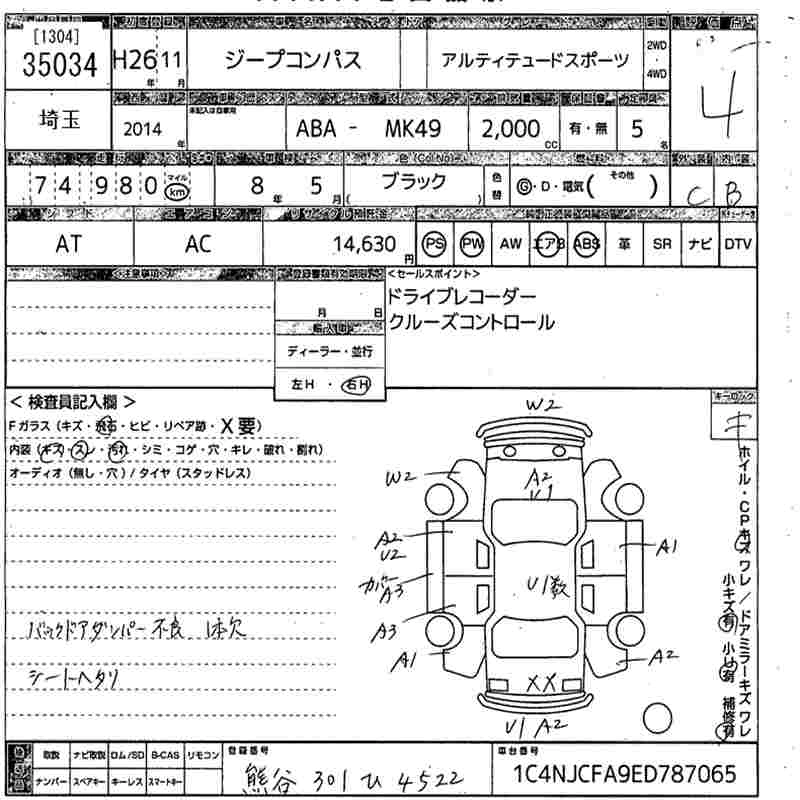 [1304]
35034
H26 11
年 月
ジープコンパス
アルティテュードスポーツ
2WD
4WD
4
埼玉
2014 年
未記入は自家用
ABA - MK49
2,000 cc
有・無
5 名
74980
マイル
km
8 年 5 月
色 (Col No)
ブラック
色替
G・D・電気( その他 )
C B
AT
AC
14,630 円
PS PW AW エアB ABS 革 SR ナビ DTV
月 日
ディーラー・並行
左H ・ 右H
<セールスポイント>
ドライブレコーダー
クルーズコントロール
< 検査員記入欄 >
Fガラス (キズ・飛石・ヒビ・リペア跡・X要)
内装 (キズ・スレ・汚れ・シミ・コゲ・穴・キレ・破れ・割れ)
オーディオ (無し・穴) / タイヤ (スタッドレス)
バックドアダンパー不良 1本欠
シートヘタリ
キーロック
W2
W2
A2
U1
A2
U2
A1
カバー
A3
U1数
A3
A1
A2
XX
U1 A2
ホイル・CPキズ ワレ / ドアミラーキズ ワレ
小キズ有 小U有 補修有
取説 ナビ取説 ロム/SD B-CAS リモコン
ナンバー スペアキー キーレス スマートキー
登録番号
熊谷 301 ひ 4522
車台番号
1C4NJCFA9ED787065